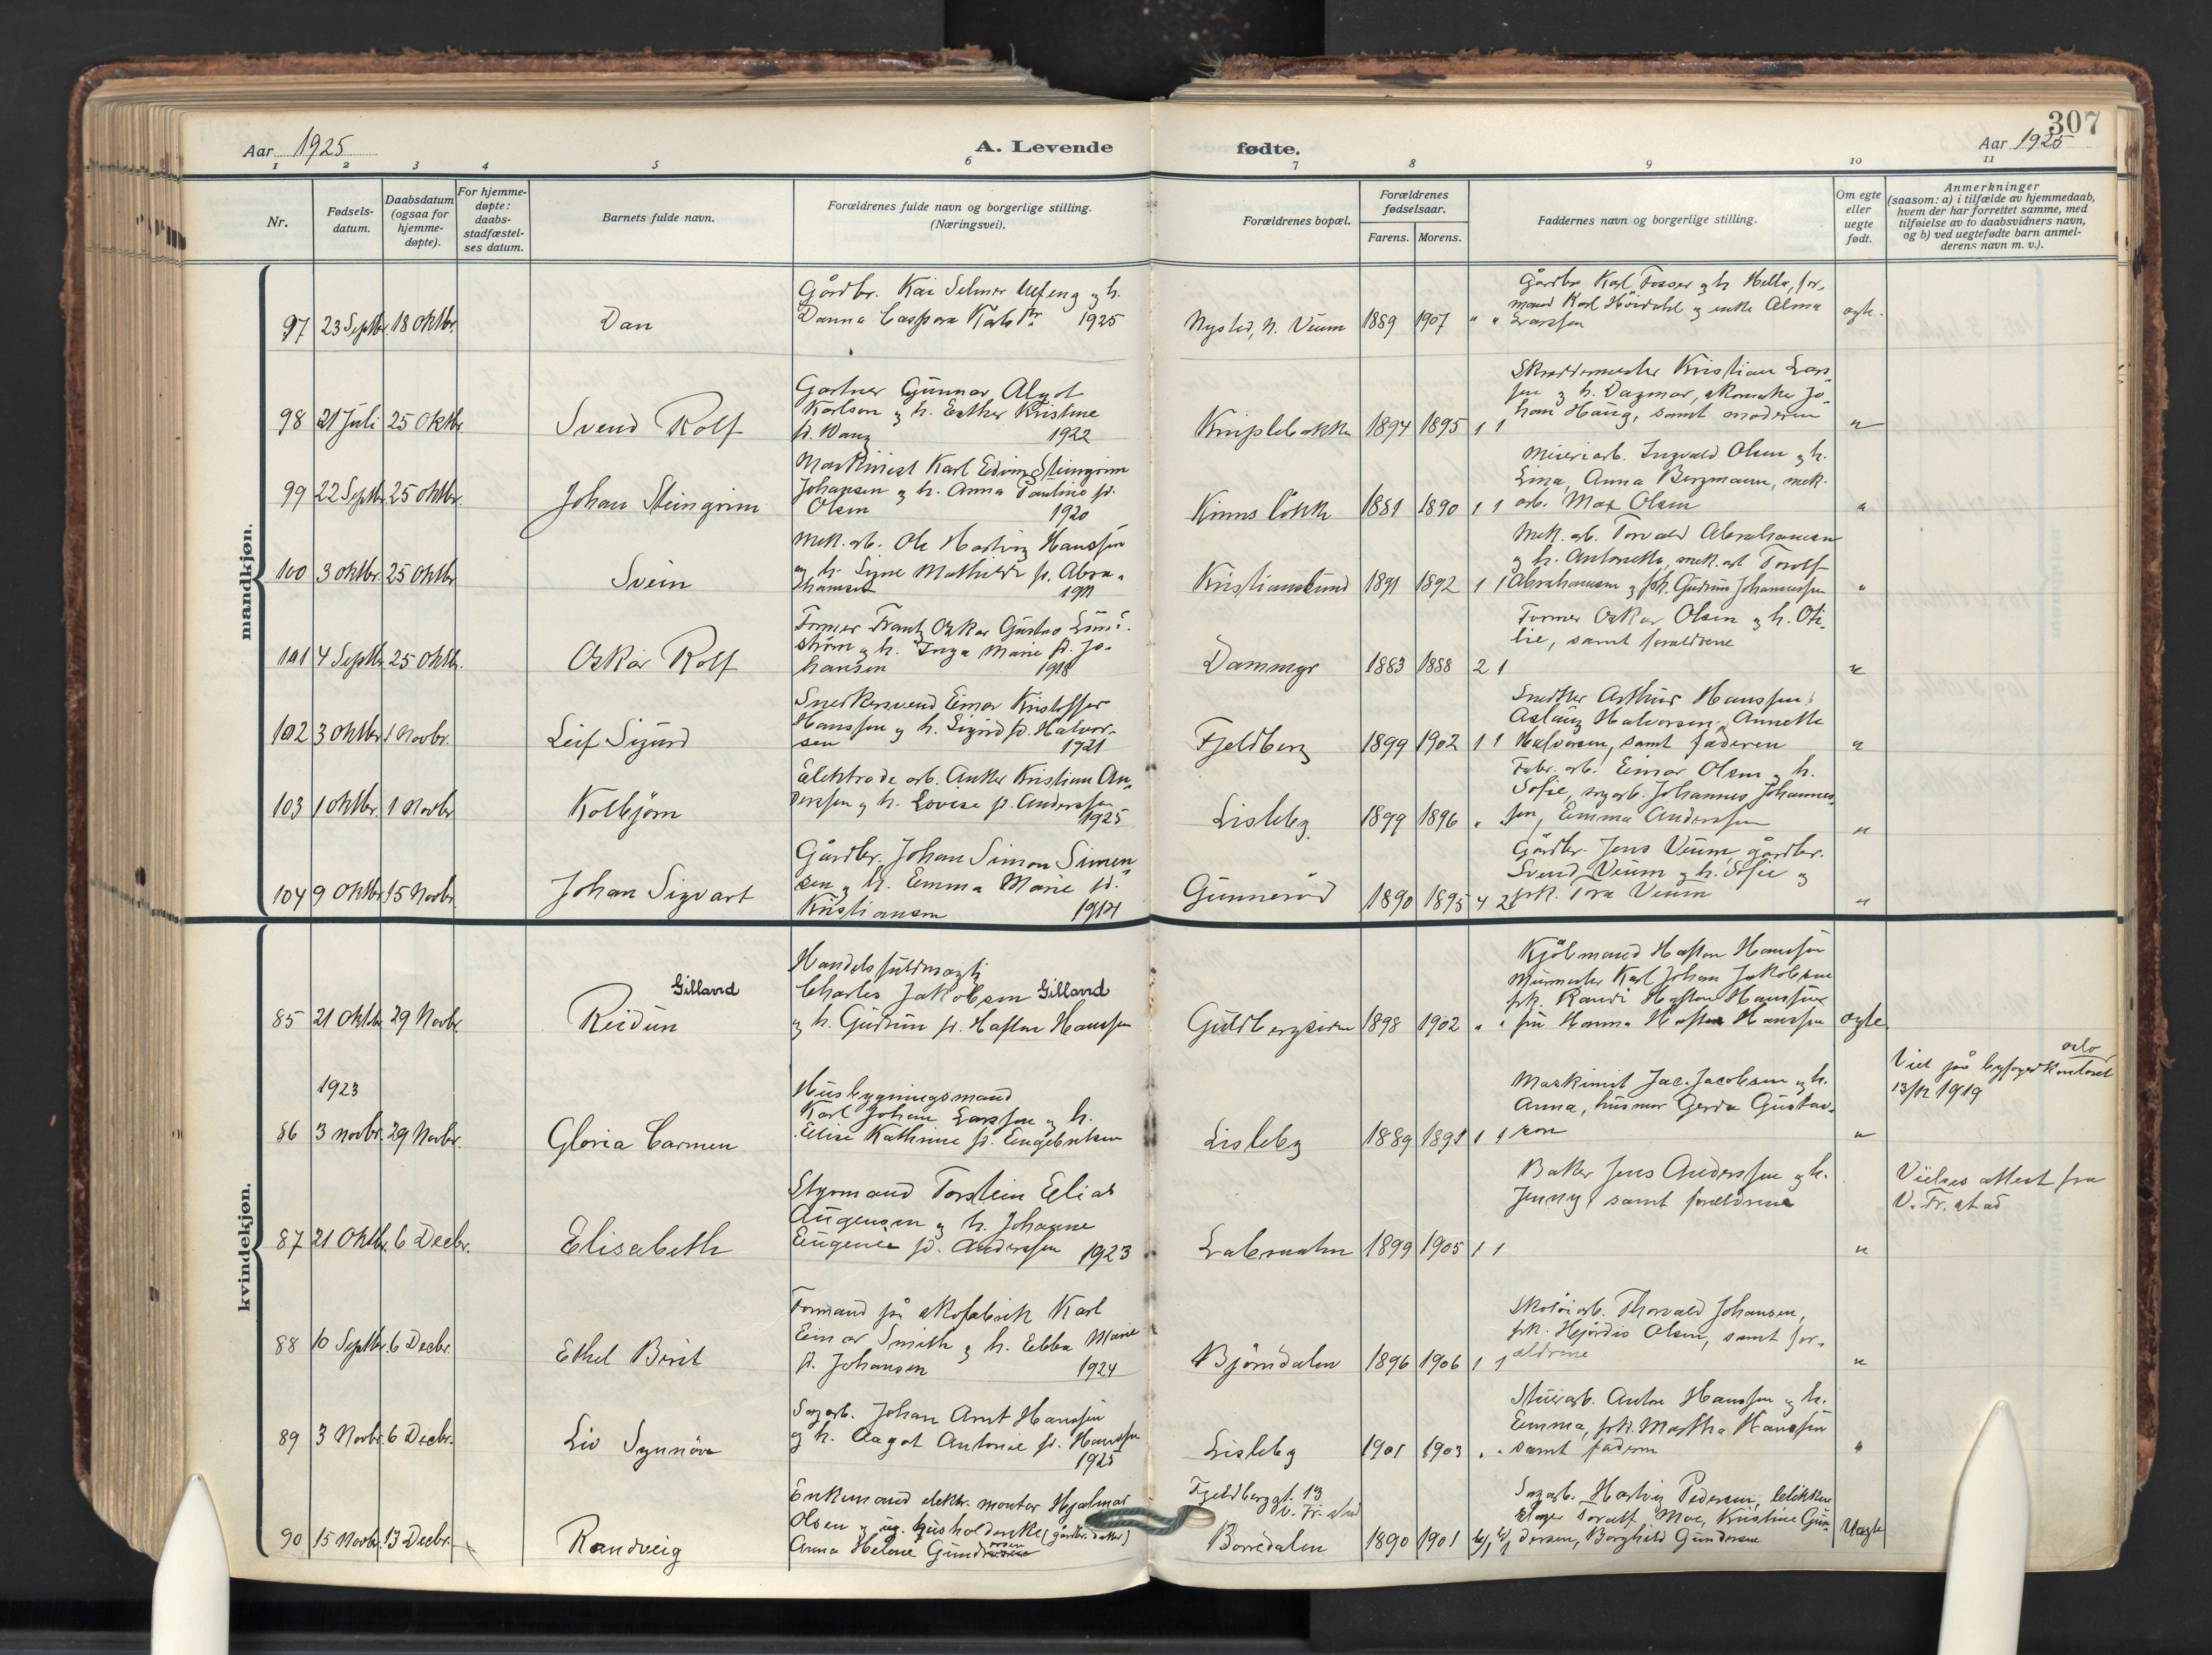 307
Aar 1925
A. Levende
fødte.
Aar 1925
1 2 3 4 5 6 7 8 9 10 11
Nr.
Fødsels-
datum.
Daabsdatum
(ogsaa for
hjemme-
døpte).
For hjemme-
døpte:
daabs-
stadfæstel-
ses datum.
Barnets fulde navn.
Forældrenes fulde navn og borgerlige stilling.
(Næringsvei).
Forældrenes bopæl.
Forældrenes
fødselsaar.
Farens. Morens.
Faddernes navn og borgerlige stilling.
Om egte
eller
uegte
født.
Anmerkninger
(saasom: a) i tilfælde av hjemmedaab,
hvem der har forrettet samme, med
tilføielse av to daabsvidners navn,
og b) ved uegtefødte barn anmel-
derens navn m. v.).
mandkjøn.
97 23 Septbr. 18 Oktbr.
Dan
Gårdbr. Kai Selmer
1925
Nysted, N. Veum
1889 1907 " "
Gårdbr. Karl Fosser og h. Helle, for-
mand Karl Høidahl og enke Alma
Larssen
egte
98 21 Juli 25 Oktbr.
Svend Rolf
Gartner Gunnar Algot
Karlson og h. Esther Kristine
f. Wang 1922
1894 1895 1 1
Skræddermester Kristian Lars-
sen og h. Dagmar, skomaker Jo-
han Haug, samt moderen
"
99 22 Septbr. 25 Oktbr.
Johan Steingrim
Maskinist Karl Edvin Steingrim
Johansen og h. Anna Pauline f.
Olsen 1920
1889 1890 1 1
Meieriarb. Ingvald Olsen og h.
Lina, Anna Bergmann, mek.
arb. Max Olsen
"
100 3 Oktbr. 25 Oktbr.
Svein
Mek. arb. Ole Hartvig Hanssen
og h. Signe Mathilde f. Abra-
hamsen
Kristianslund
1891 1892 1 1
Mek. arb. Torvald Abrahamsen
og h. Antonette, mek. arb. Torolf
Abrahamsen og frk. Gudrun Johannessen
"
101 4 Septbr. 25 Oktbr.
Oskar Rolf
Former Frantz Oskar Gustav
strøm og h. Inga Marie f. Jo-
hansen 1918
Dammyr
1883 1888 2 1
Former Oskar Olsen og h. Oti-
lie, samt forældrene
"
102 3 Oktbr. 1 Novbr.
Leif Sigurd
Snekkersvend Einar Kristoffer
Hanssen og h. Sigrid f. Halvor-
sen 1921
Fjeldberg
1899 1902 1 1
Snekker Arthur Hanssen,
Aslaug Halvorsen, Annette
Halvorsen, samt faderen
"
103 1 Oktbr. 1 Novbr.
Kolbjørn
Elektrode arb. Anker Kristian An-
derssen og h. Lovise f. Anderssen
1925
Lisleby
1899 1896 "
Fabr. arb. Einar Olsen og h.
Sofie, sagarb. Johannes Johannes-
sen, Emma Anderssen
"
104 9 Oktbr. 15 Novbr.
Johan Sigvart
Gårdbr. Johan Simon Simen-
sen og h. Emma Marie f.
Kristiansen 1914
Gunnerød
1890 1895 4 2
Gårdbr. Jens Veum, gårdbr.
Svend Veum og h. Sofie og
frk. Tora Veum
"
kvindekjøn.
85 21 Oktbr. 29 Novbr.
Reidun Gillavrd
Handelsfuldmægtig
Charles Jakobsen Gillavrd
og h. Gudrun f. Hafton Hanssen
1898 1902 " "
Kjøbmand Hafton Hanssen
Murmester Karl Johan Jakobsen
frk. Randi Hafton Hanssen
fru Hanna Hafton Hanssen
egte
1923
86 3 novbr. 29 Novbr.
Gloria Carmen
Husbygningsmand
Karl Johan Larssen og h.
Elise Kathrine f. Engebretsen
Lisleby
1889 1891 1 1
Maskinist Jac. Jacobsen og h.
Anna, husmor Gerda Gustav-
son
"
Viet på byfogedkontoret Oslo
13/12 1919
87 21 Oktbr. 6 Decbr.
Elisabeth
Styrmand Torstein Elias
Augensen og h. Johanne
Eugenie f. Anderssen 1923
1899 1905 1 1
Baker Jens Anderssen og h.
Jenny, samt forældrene
"
Vielses attest fra
V. Fr.stad
88 10 Septbr. 6 Decbr.
Ethel Berit
Formand på skofabrik Karl
Einar Smith og h. Ebba Marie
f. Johansen 1924
Bjørndalen
1896 1906 1 1
Skotøiarb. Thorvald Johansen,
frk. Hjørdis Olsen, samt for-
ældrene
"
89 3 Novbr. 6 Decbr.
Liv Synnøve
Sagarb. Johan Arnt Hanssen
og h. Aagot Antonie f. Hanssen
1925
Lisleby
1901 1903 " "
Stuerarb. Anton Hanssen og h.
Emma, frk. Martha Hanssen
samt faderen
"
90 15 Novbr. 13 Decbr.
Randveig
Enkemand elektr. montør Hjalmar
Olsen og ug. husholderske (gårdbr. datter)
Anna Helene Gundersen
Fjeldberggt. 13
V. Fr.stad
Borredalen
1890 1901
Sagarb. Hartvig Pedersen, blikken-
slager Toralf Moe, Kristine Gun-
dersen, Borghild Gundersen
Uegte